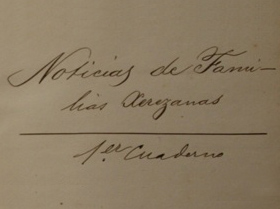 Noticias de Fami-
lias Xerezanas
1.er Cuaderno